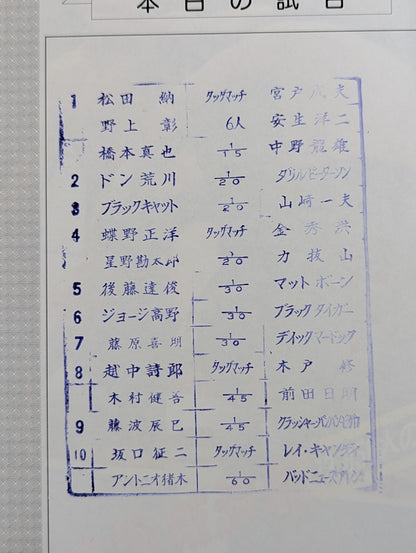 本日の試合
1 松田 納 タッグマッチ 宮戸成夫
野上 彰 6人 安生洋二
橋本真也 1/15 中野龍雄
2 ドン荒川 1/20 ダリルピーターソン
3 ブラックキャット 1/20 山崎一夫
4 蝶野正洋 タッグマッチ 金秀洪
星野勘太郎 力抜山
5 後藤達俊 1/30 マットボーン
6 ジョージ高野 1/30 ブラックタイガー
7 藤原喜明 1/30 ディックマードック
8 越中詩郎 タッグマッチ 木戸 修
木村健吾 1/45 前田日明
9 藤波辰巳 1/45
10 坂口征二 タッグマッチ レイ・キャンディ
アントニオ猪木 1/60 バッドニュースアレン